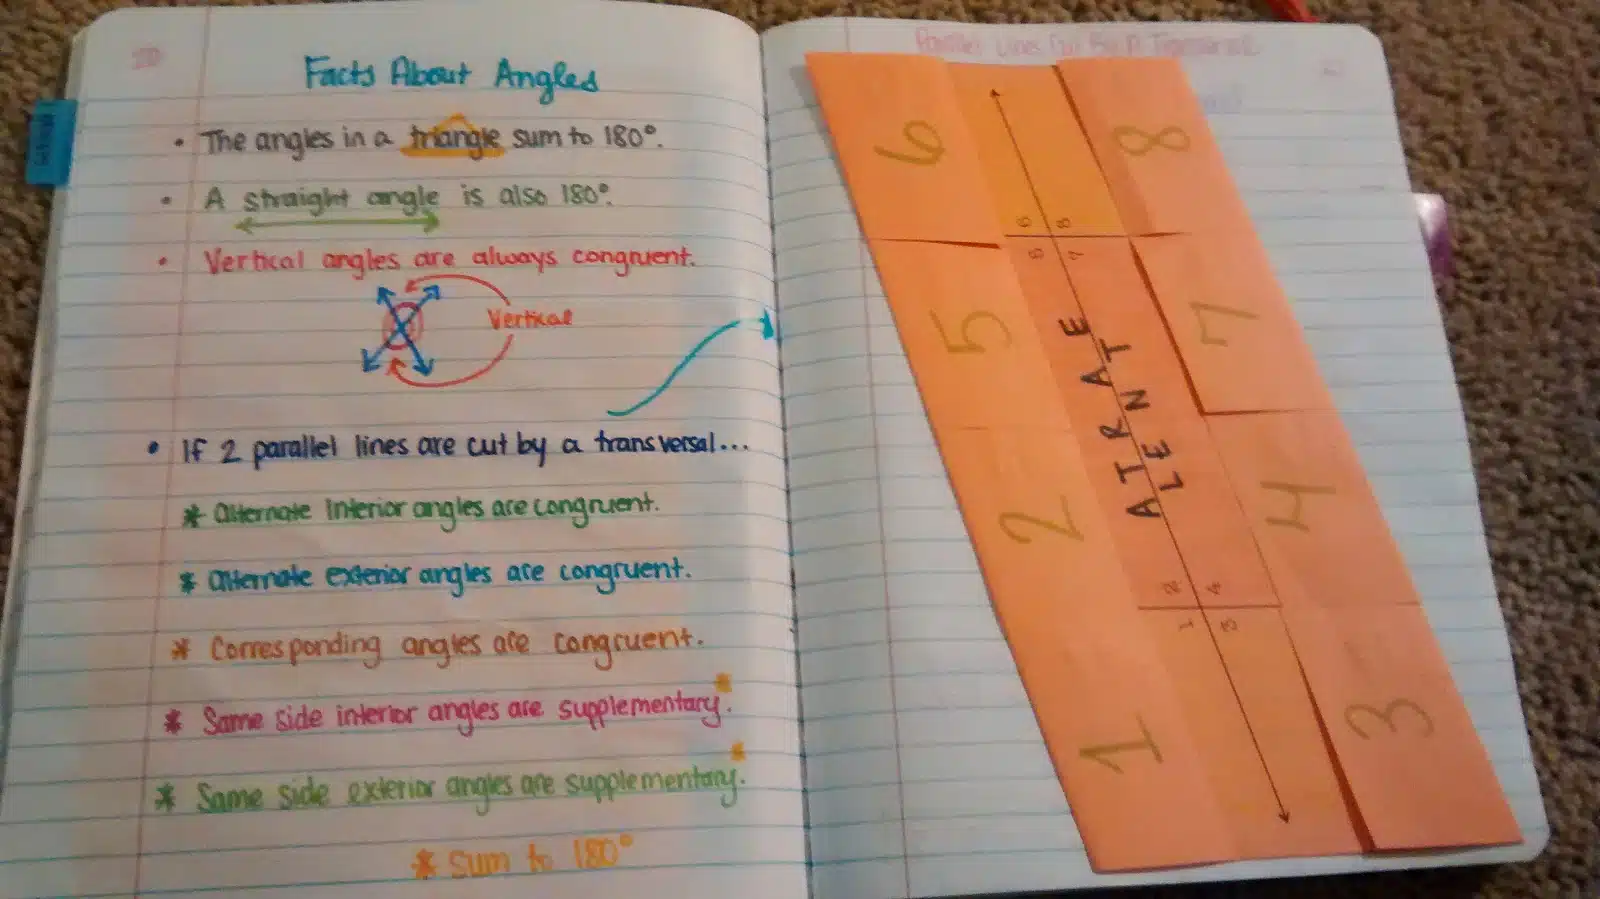 Facts About Angles
• The angles in a triangle sum to 180°.
• A straight angle is also 180°.
• Vertical angles are always congruent.
Vertical
• If 2 parallel lines are cut by a transversal...
* Alternate Interior angles are congruent.
* Alternate exterior angles are congruent.
* Corresponding angles are congruent.
* Same side interior angles are supplementary*.
* Same side exterior angles are supplementary*.
* Sum to 180°
Parallel Lines Cut By A Transversal
6 8
5 7
2 4
1 3
6 8
5 7
ALTERNATE
2 4
1 3